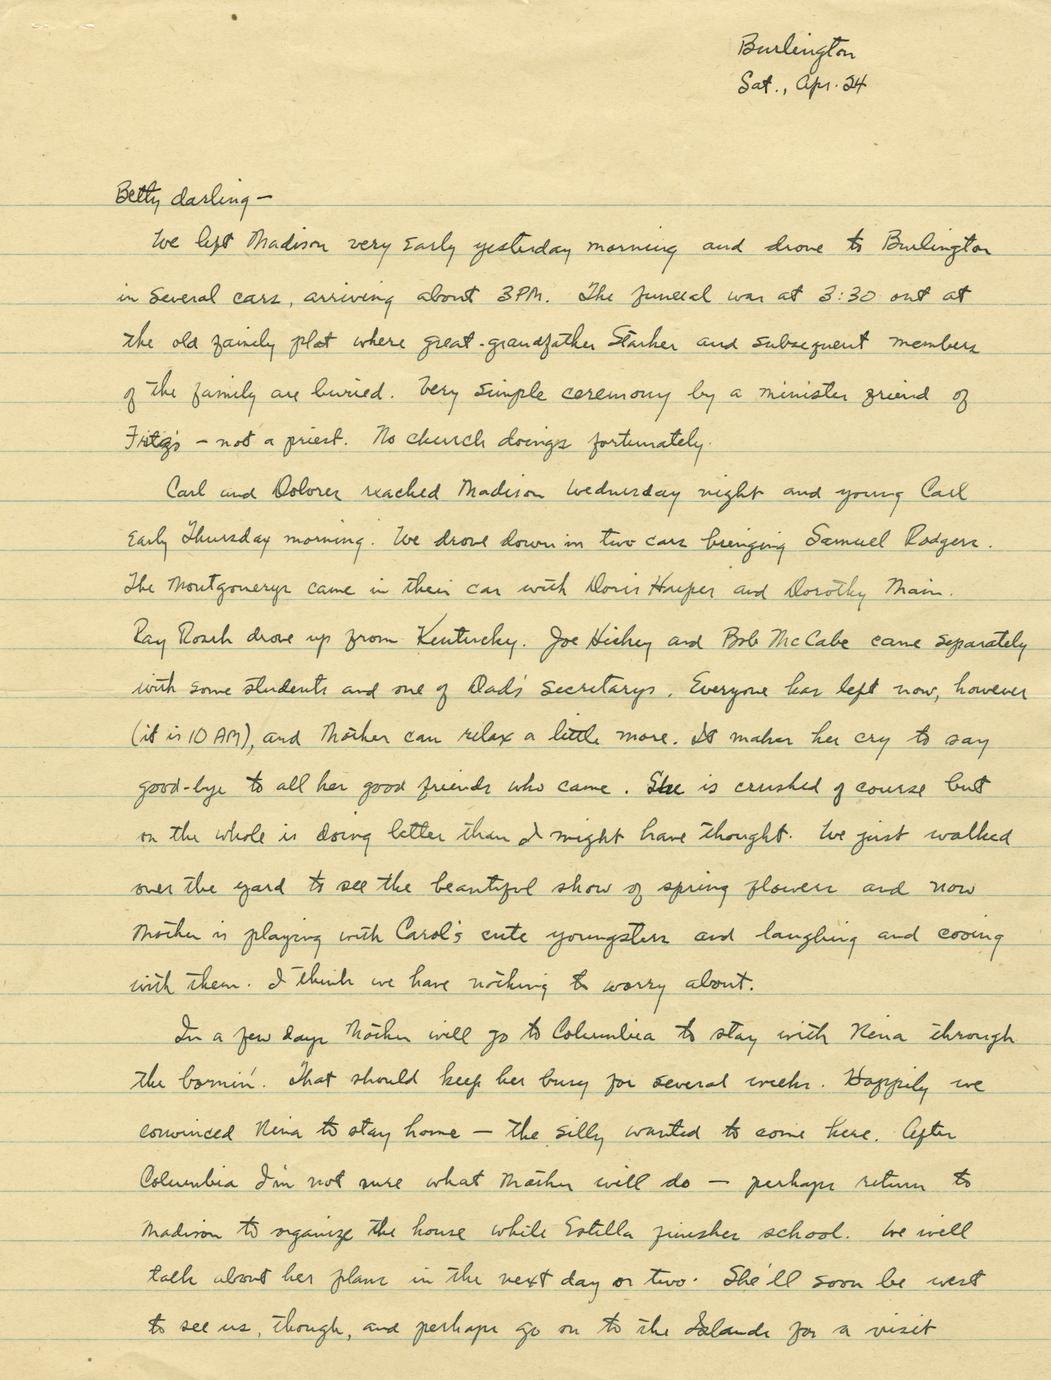 Burlington
Sat., Apr. 24
Betty darling —
We left Madison very early yesterday morning and drove to Burlington
in several cars, arriving about 3PM. The funeral was at 3:30 out at
the old family plot where great-grandfather Starker and subsequent members
of the family are buried. Very simple ceremony by a minister friend of
Fritz's — not a priest. No church doings fortunately.
Carl and Dolores reached Madison Wednesday night and young Carl
early Thursday morning. We drove down in two cars bringing Samuel Rodgers.
The Montgomerys came in their car with Doris Harper and Dorothy Main.
Ray Roark drove up from Kentucky. Joe Hickey and Bob McCabe came separately
with some students and one of Dad's secretarys. Everyone has left now, however
(it is 10 AM), and Mother can relax a little more. It makes her cry to say
good-bye to all her good friends who came. She is crushed of course but
on the whole is doing better than I might have thought. We just walked
over the yard to see the beautiful show of spring flowers and now
Mother is playing with Carol's cute youngsters and laughing and cooing
with them. I think we have nothing to worry about.
In a few days Mother will go to Columbia to stay with Nina through
the bornin'. That should keep her busy for several weeks. Happily we
convinced Nina to stay home — the silly wanted to come here. After
Columbia I'm not sure what Mother will do — perhaps return to
Madison to organize the house while Estella finishes school. We will
talk about her plans in the next day or two. She'll soon be west
to see us, though, and perhaps go on to the Islands for a visit